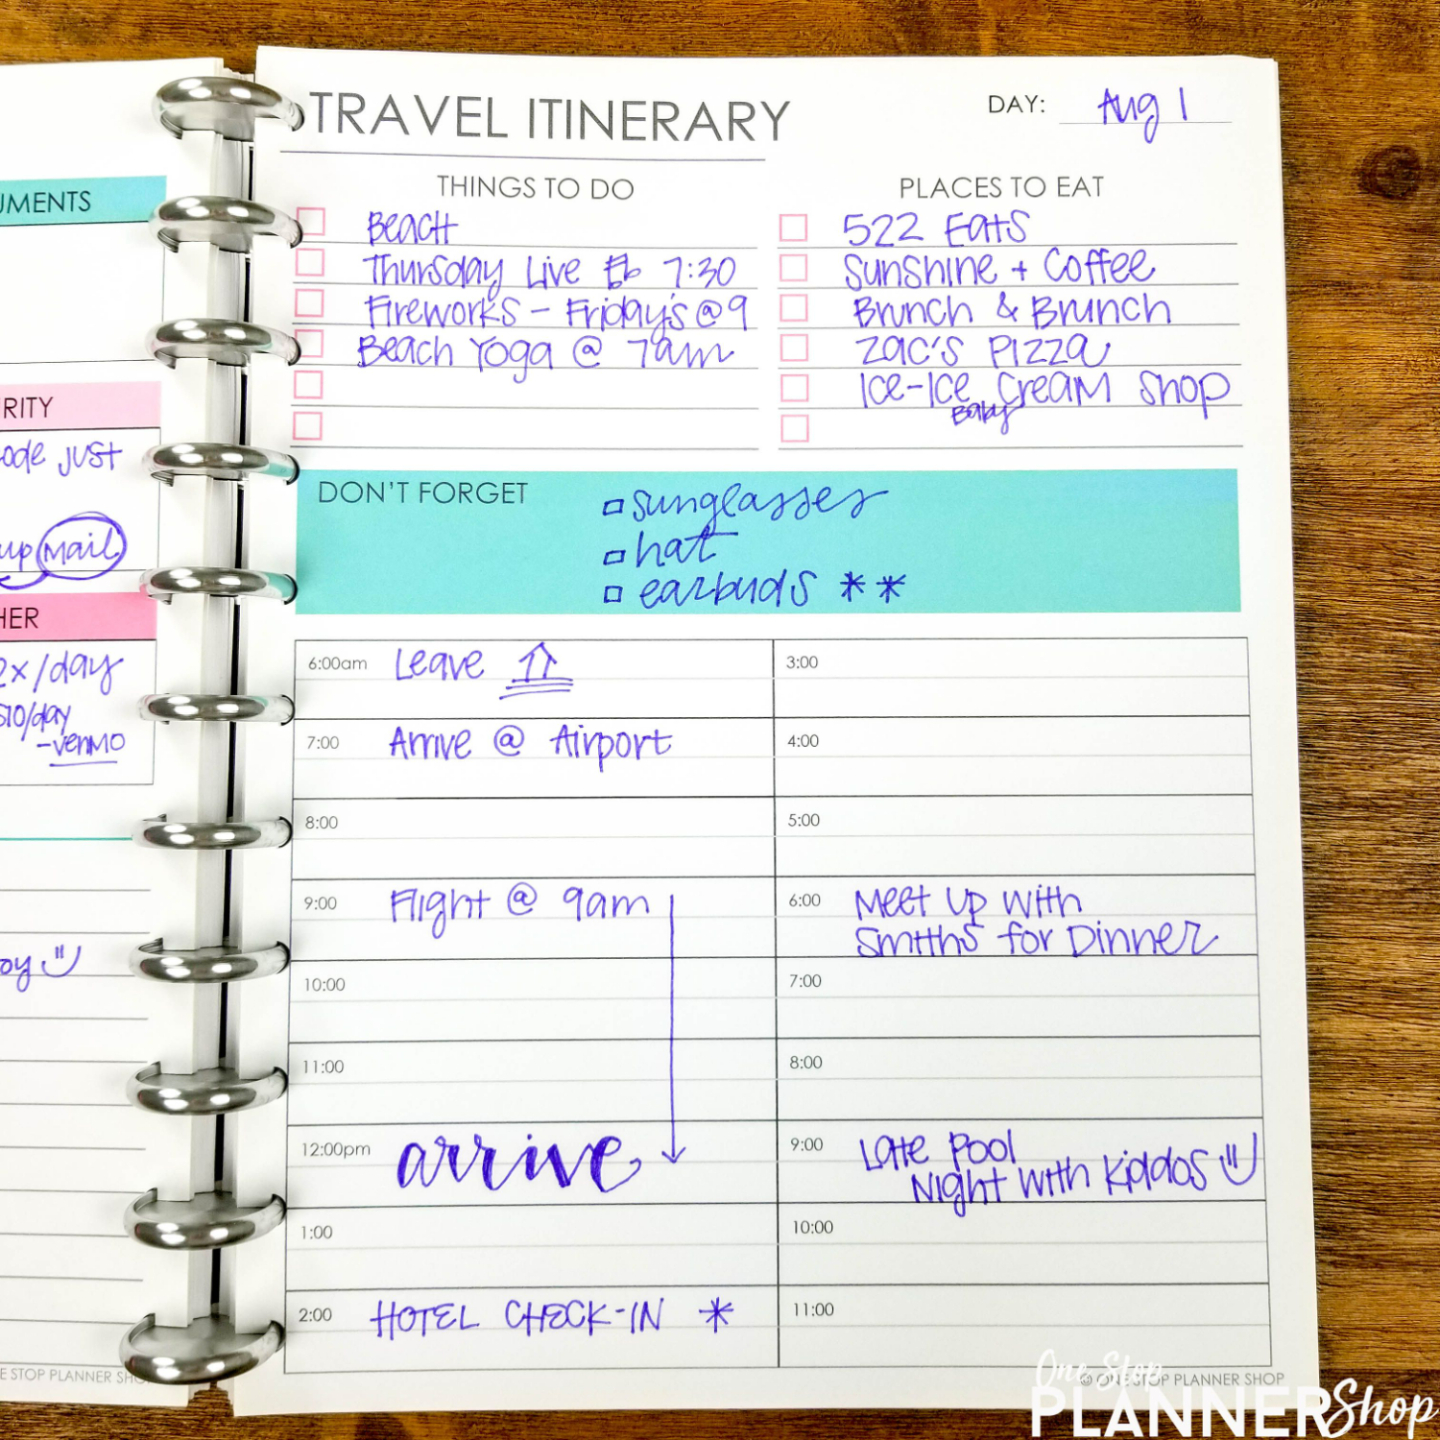 UMENTS
RITY
ode just
up mail
HER
2x/day
$10/day
-venmo
oy
E STOP PLANNER SHO
TRAVEL ITINERARY
DAY: Aug 1
THINGS TO DO
Beach
Thursday Live 7:30
Fireworks - Friday's @ 9
Beach Yoga @ 7am
PLACES TO EAT
522 Eats
Sunshine + Coffee
Brunch & Brunch
Zac's Pizza
Ice-Ice Cream Shop
Baby
DON'T FORGET
sunglasses
hat
earbuds **
6:00am Leave
7:00 Arrive @ Airport
8:00
9:00 Flight @ 9am
10:00
11:00
12:00pm arrive
1:00
2:00 HOTEL CHECK-IN *
3:00
4:00
5:00
6:00 Meet up with
Smiths for Dinner
7:00
8:00
9:00 Late Pool
Night with Kiddos
10:00
11:00
© ONE STOP PLANNER SHOP
One Stop
PLANNER Shop